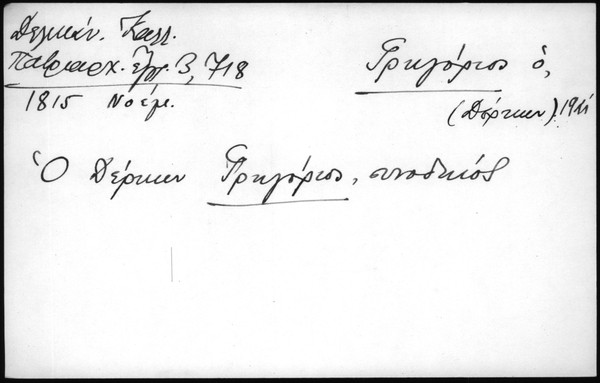 Δελικάν. Καλλ.
Πατριαρχ. ἔγγρ. 3, 718
1815 Νοέμ.
Γρηγόριος ὁ,
(Δέρκων)
Ὁ Δέρκων Γρηγόριος, συνοδικός